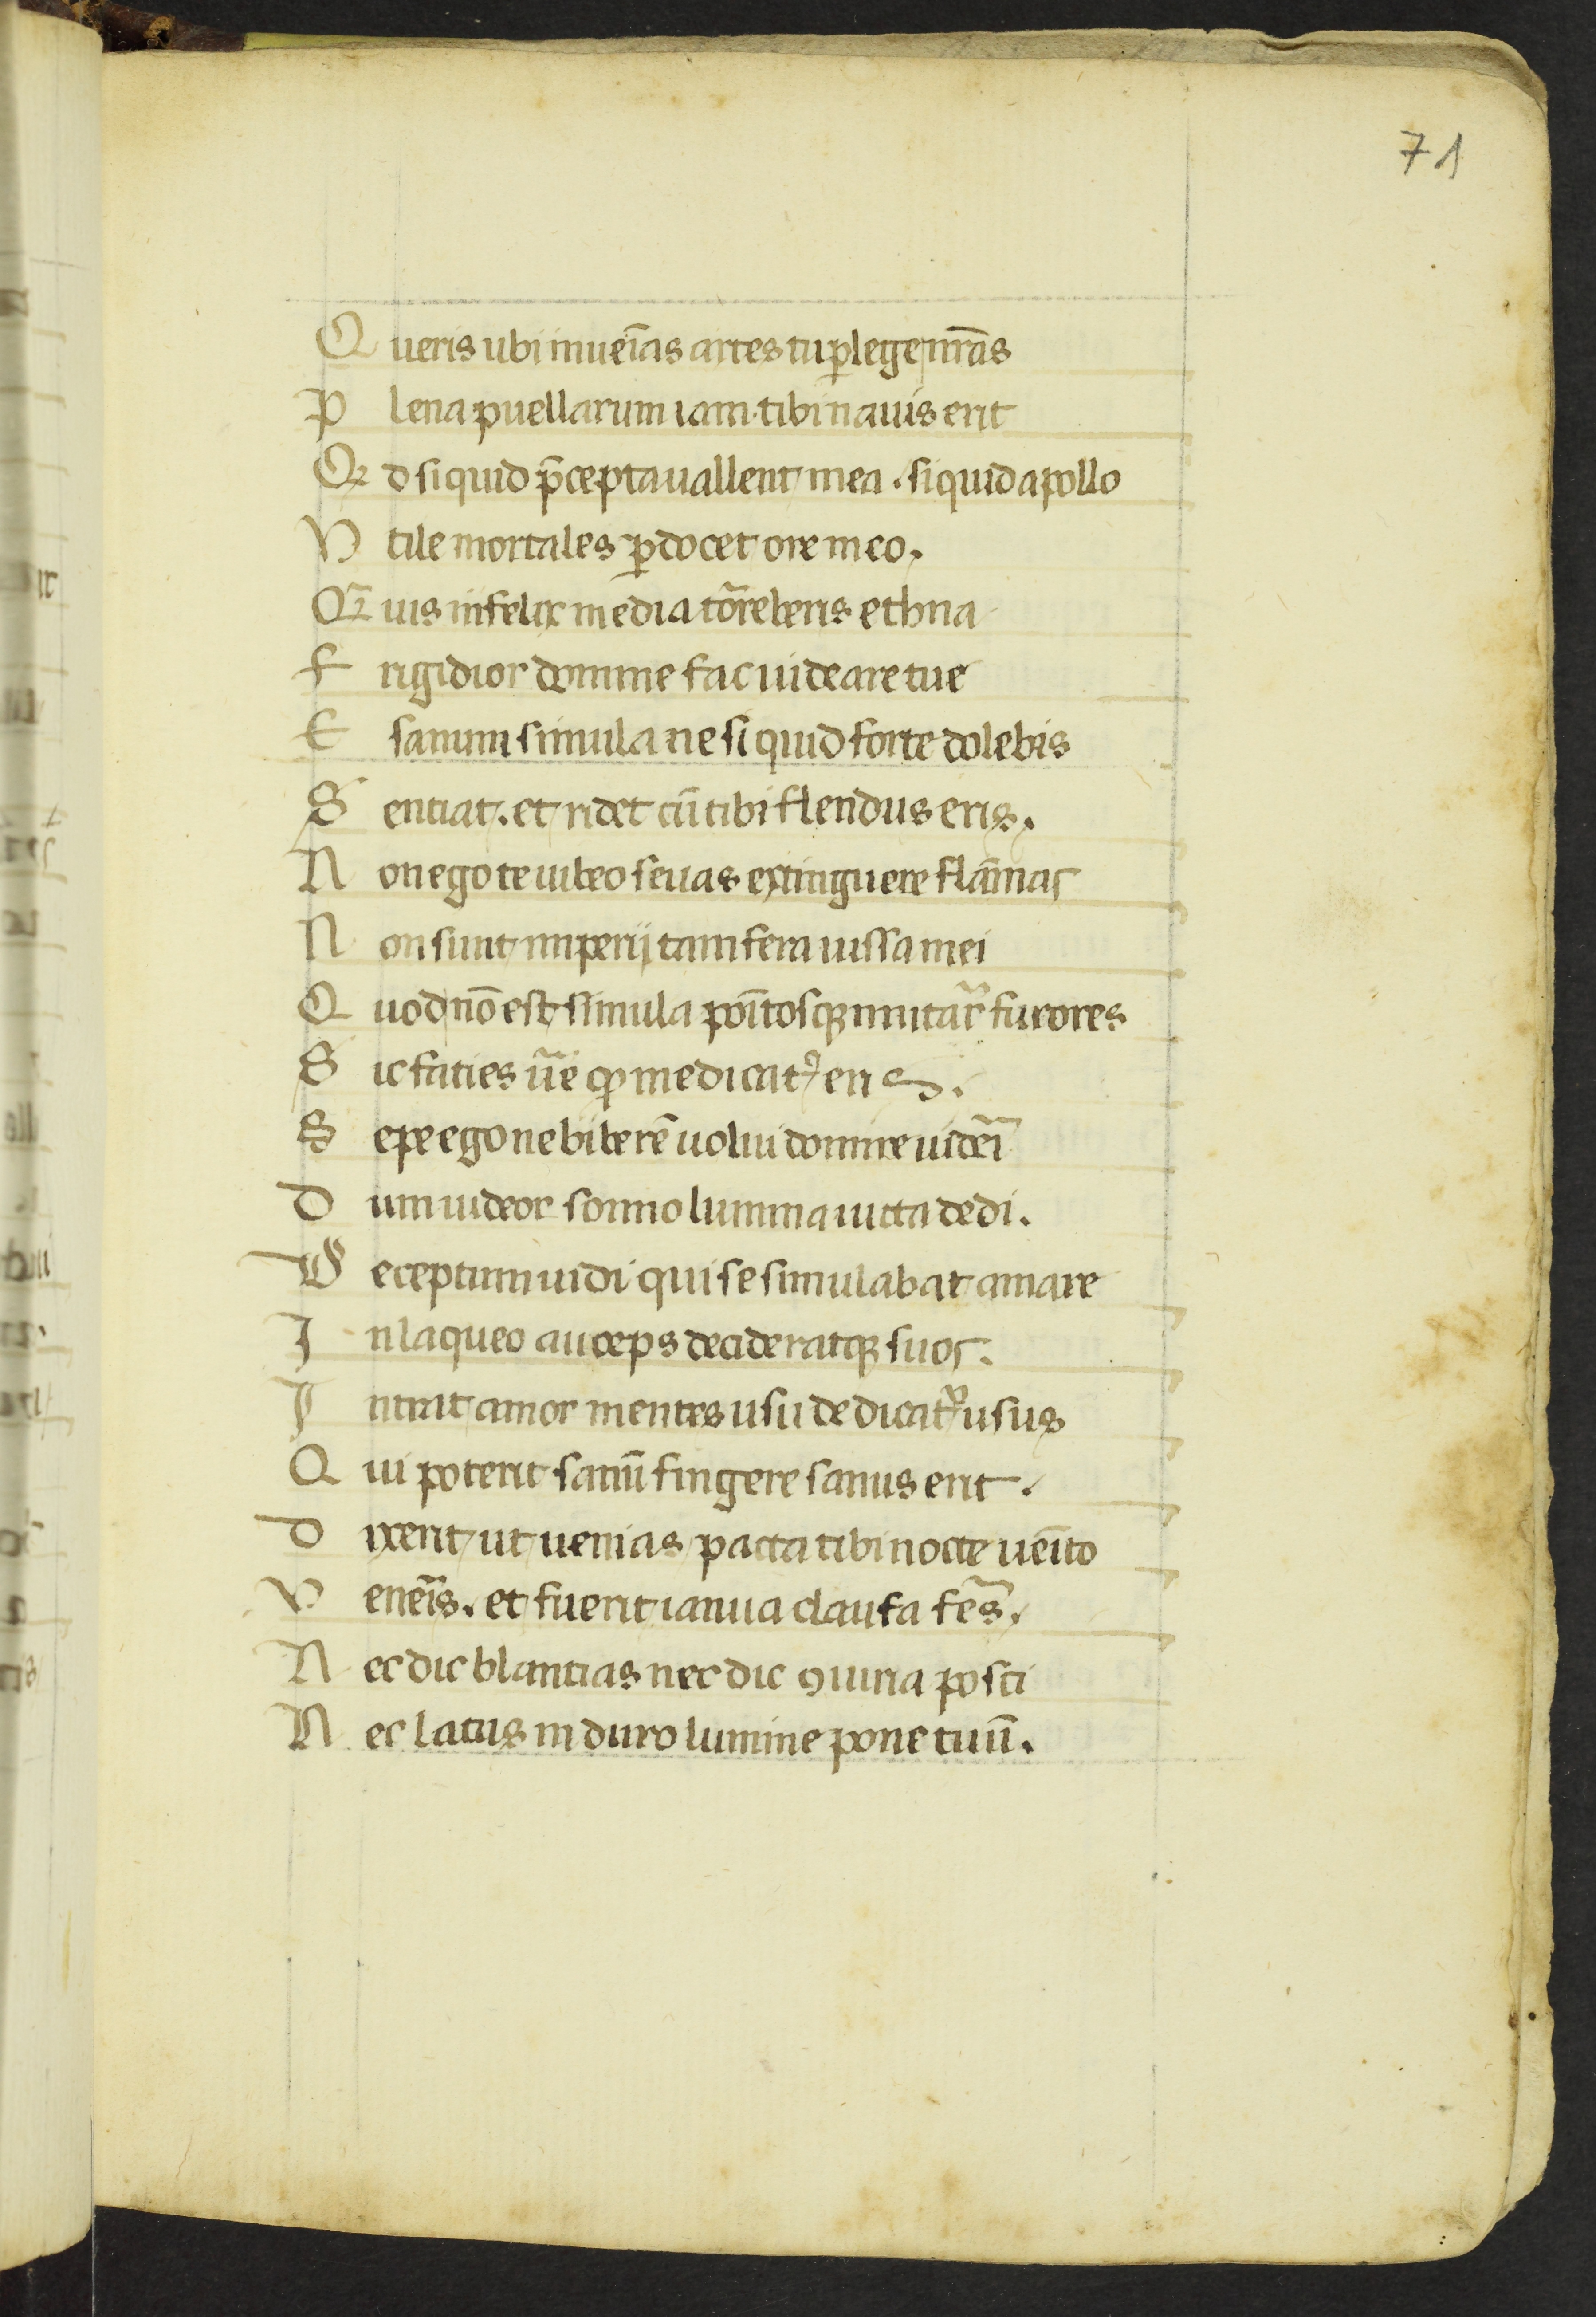 71
Queris ubi inueīas artes tu ꝑlege nr̄as
Plena puellarum iam tibi nauis erit
Qd si quid p̄cepta uallent mea . si quid apollo
Vtile mortales ꝑdocet ore meo.
Qȝuis infelix media tōrreberis ethna
Frigidior domine fac uideare tue
Et sanum simula ne si quid forte dolebis
Sentiat. et ridet cū tibi flendus eris.
Non ego te iubeo seuas extinguere flāmas
Non sunt imperij tam fera iussa mei
Quod nō est simula poītosqꝫ imitar̄ furores
Sic faties ūe qͦ medicatꝰ eris.
Sepe ego ne biberē uolui dormire uider̄i
Dum uideor somno lumina uicta dedi.
Deceptum uidi qui se simulabat amare
In laqueo auceps decideratqꝫ suos.
Intrat amor mentes usu dedicat᷑ usus
Qui poterit sanū fingere sanus erit.
dixerit ut uenias pacta tibi nocte ueīto
Veneīs. et fuerit ianua clausa fēs.
Nec dic blantias nec dic ꝯuitia posti
Nec latus in duro lumine pone tuū.